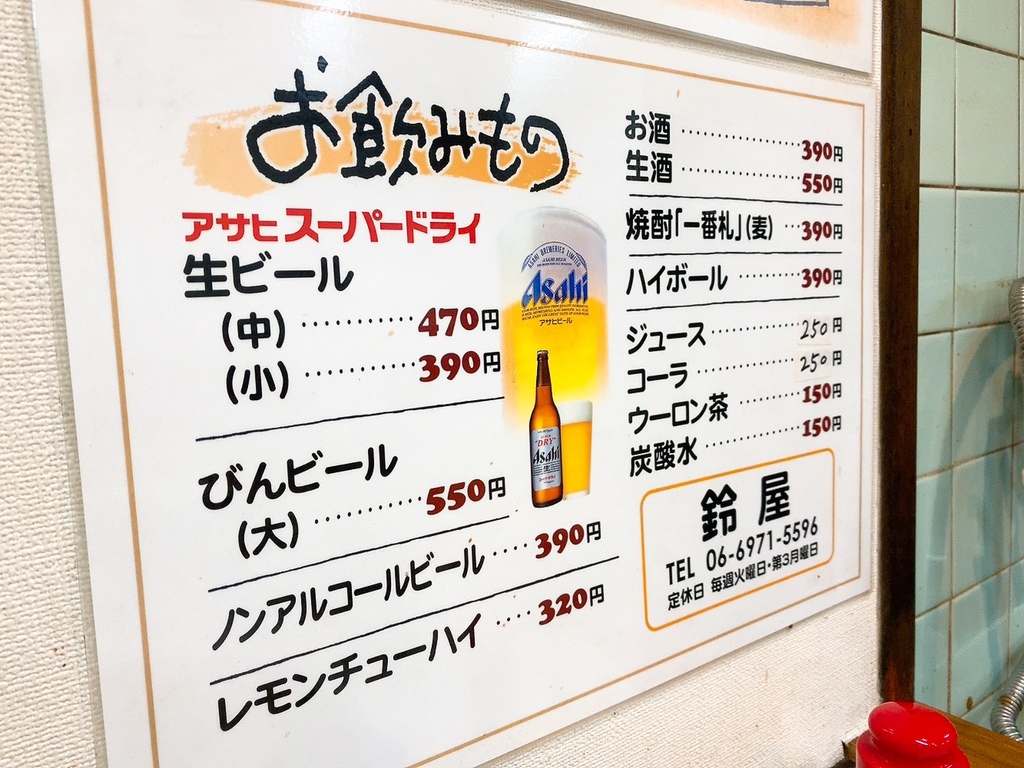 お飲みもの
アサヒスーパードライ
生ビール
(中) ············ 470円
(小) ············ 390円
びんビール
(大) ············ 550円
ノンアルコールビール ···· 390円
レモンチューハイ ···· 320円
ASAHI BREWERIES LIMITED
Asahi
アサヒビール
DRY
Asahi
生
お酒 ············ 390円
生酒 ············ 550円
焼酎「一番札」(麦) ··· 390円
ハイボール ······· 390円
ジュース ········ 250円
コーラ ·········· 250円
ウーロン茶 ······· 150円
炭酸水 ·········· 150円
鈴屋
TEL 06-6971-5596
定休日 毎週火曜日・第3月曜日